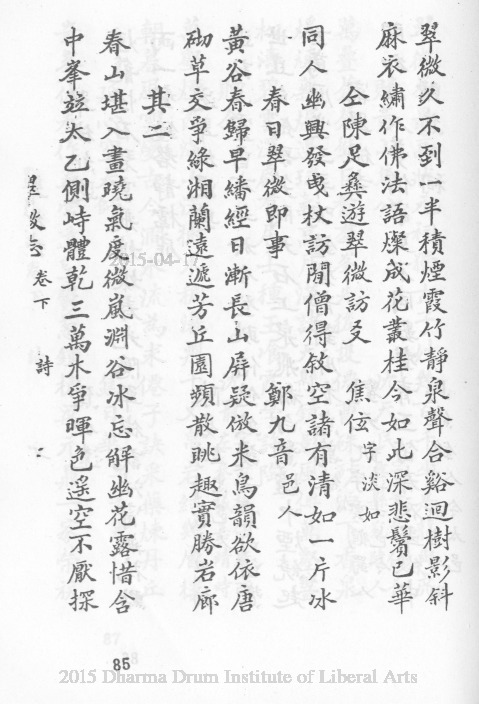 翠微久不到一半積煙霞竹靜泉聲合谿迴樹影斜
麻衣繡作佛法語燦成花叢桂今如此深悲鬢已華
仝陳足彝遊翠微訪友 焦伭 字淡如
同人幽興發曵杖訪閒僧得敘空諸有清如一片冰
春日翠微即事 鄭九音 邑人
黃谷春歸早繙經日漸長山屏疑倣米鳥韻欲依唐
砌草交爭綠湘蘭遠遞芳丘園頻散眺趣實勝岩廊
其二
春山堪入畫曉氣度微嵐淵谷冰忘解幽花露惜含
中峯竝太乙側峙體乾三萬木爭暉色遙空不厭探
卷下 詩
85
2015-04-17
2015 Dharma Drum Institute of Liberal Arts